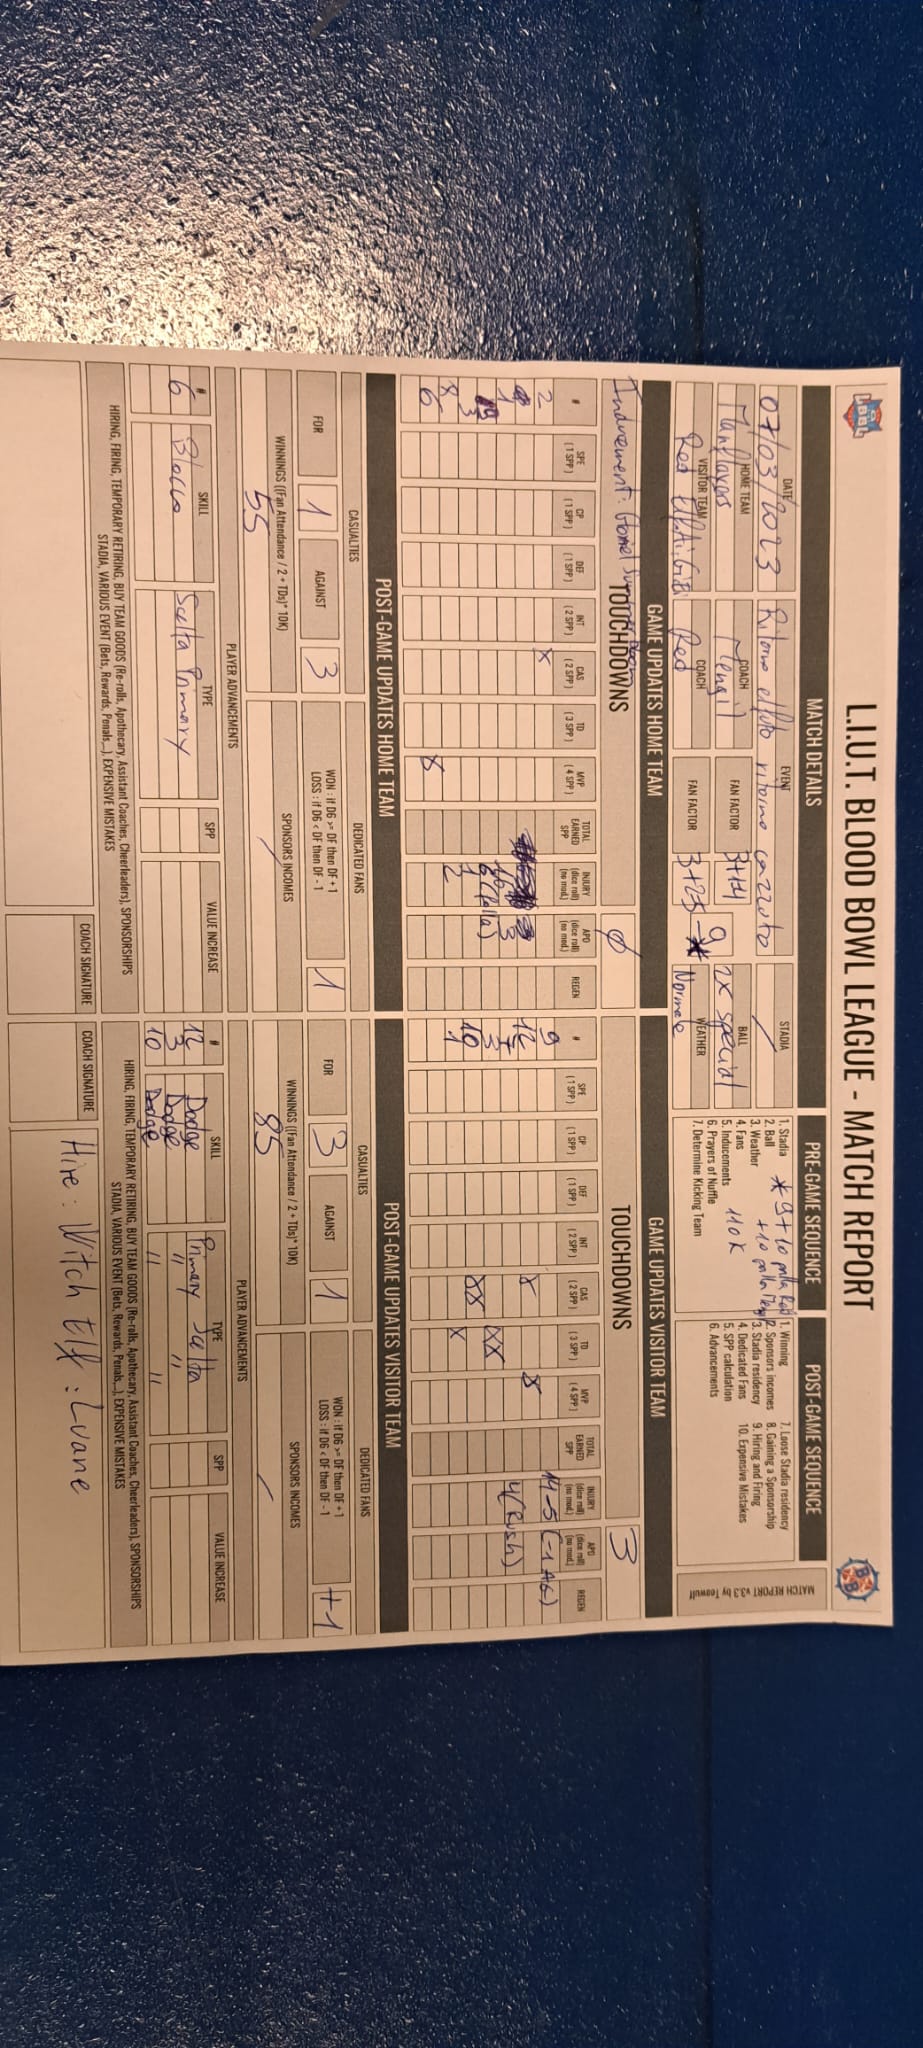 L.I.U.T. BLOOD BOWL LEAGUE - MATCH REPORT
MATCH DETAILS
DATE
EVENT
STADIA
07/03/2023
Ritorno elfuto ritorno cazzuto
HOME TEAM
COACH
FAN FACTOR
BALL
Manflayers
Mengil
3+4
9
2x special
VISITOR TEAM
COACH
FAN FACTOR
WEATHER
Red
Red
Normale
PRE-GAME SEQUENCE
1. Stadia
2. Ball
3. Weather
4. Fans
5. Inducements 110K
6. Prayers of Nuffle
7. Determine Kicking Team
* 9+10 palla Red
+10 palla
POST-GAME SEQUENCE
1. Winning
2. Sponsors incomes
3. Stadia residency
4. Dedicated Fans
5. SPP calculation
6. Advancements
7. Loose Stadia residency
8. Gaining a Sponsorship
9. Hiring and Firing
10. Expensive Mistakes
MATCH REPORT v3.3 by Teowulf
GAME UPDATES HOME TEAM
TOUCHDOWNS
0
Inducement:
# SPE (1 SPP) CP (1 SPP) DEF (1 SPP) INT (2 SPP) CAS (2 SPP) TD (3 SPP) MVP (4 SPP) TOTAL EARNED SPP INJURY (dice roll) (no mod.) APO (dice roll) (no mod.) REGEN
2 x
1
3
8
6 x
GAME UPDATES VISITOR TEAM
TOUCHDOWNS
3
# SPE (1 SPP) CP (1 SPP) DEF (1 SPP) INT (2 SPP) CAS (2 SPP) TD (3 SPP) MVP (4 SPP) TOTAL EARNED SPP INJURY (dice roll) (no mod.) APO (dice roll) (no mod.) REGEN
9 14-5 (-1 AG)
12 x x
4 (Rush)
3 xx
10 xx
1 x
POST-GAME UPDATES HOME TEAM
CASUALTIES
DEDICATED FANS
FOR 1 AGAINST 3
WON : if D6 >= DF then DF +1
LOSS : if D6 < DF then DF - 1
1
WINNINGS ((Fan Attendance / 2 + TDs)* 10K)
SPONSORS INCOMES
55
PLAYER ADVANCEMENTS
# SKILL TYPE SPP VALUE INCREASE
6 Blocco Scelta Primary
HIRING, FIRING, TEMPORARY RETIRING, BUY TEAM GOODS (Re-rolls, Apothecary, Assistant Coaches, Cheerleaders), SPONSORSHIPS
STADIA, VARIOUS EVENT (Bets, Rewards, Penals...), EXPENSIVE MISTAKES
COACH SIGNATURE
POST-GAME UPDATES VISITOR TEAM
CASUALTIES
DEDICATED FANS
FOR 3 AGAINST 1
WON : if D6 >= DF then DF +1
LOSS : if D6 < DF then DF - 1
+1
WINNINGS ((Fan Attendance / 2 + TDs)* 10K)
SPONSORS INCOMES
85
PLAYER ADVANCEMENTS
# SKILL TYPE SPP VALUE INCREASE
12 Dodge Primary Scelta
3 Dodge " "
10 Dodge " "
HIRING, FIRING, TEMPORARY RETIRING, BUY TEAM GOODS (Re-rolls, Apothecary, Assistant Coaches, Cheerleaders), SPONSORSHIPS
STADIA, VARIOUS EVENT (Bets, Rewards, Penals...), EXPENSIVE MISTAKES
COACH SIGNATURE
Hire: Witch Elf: Lvane